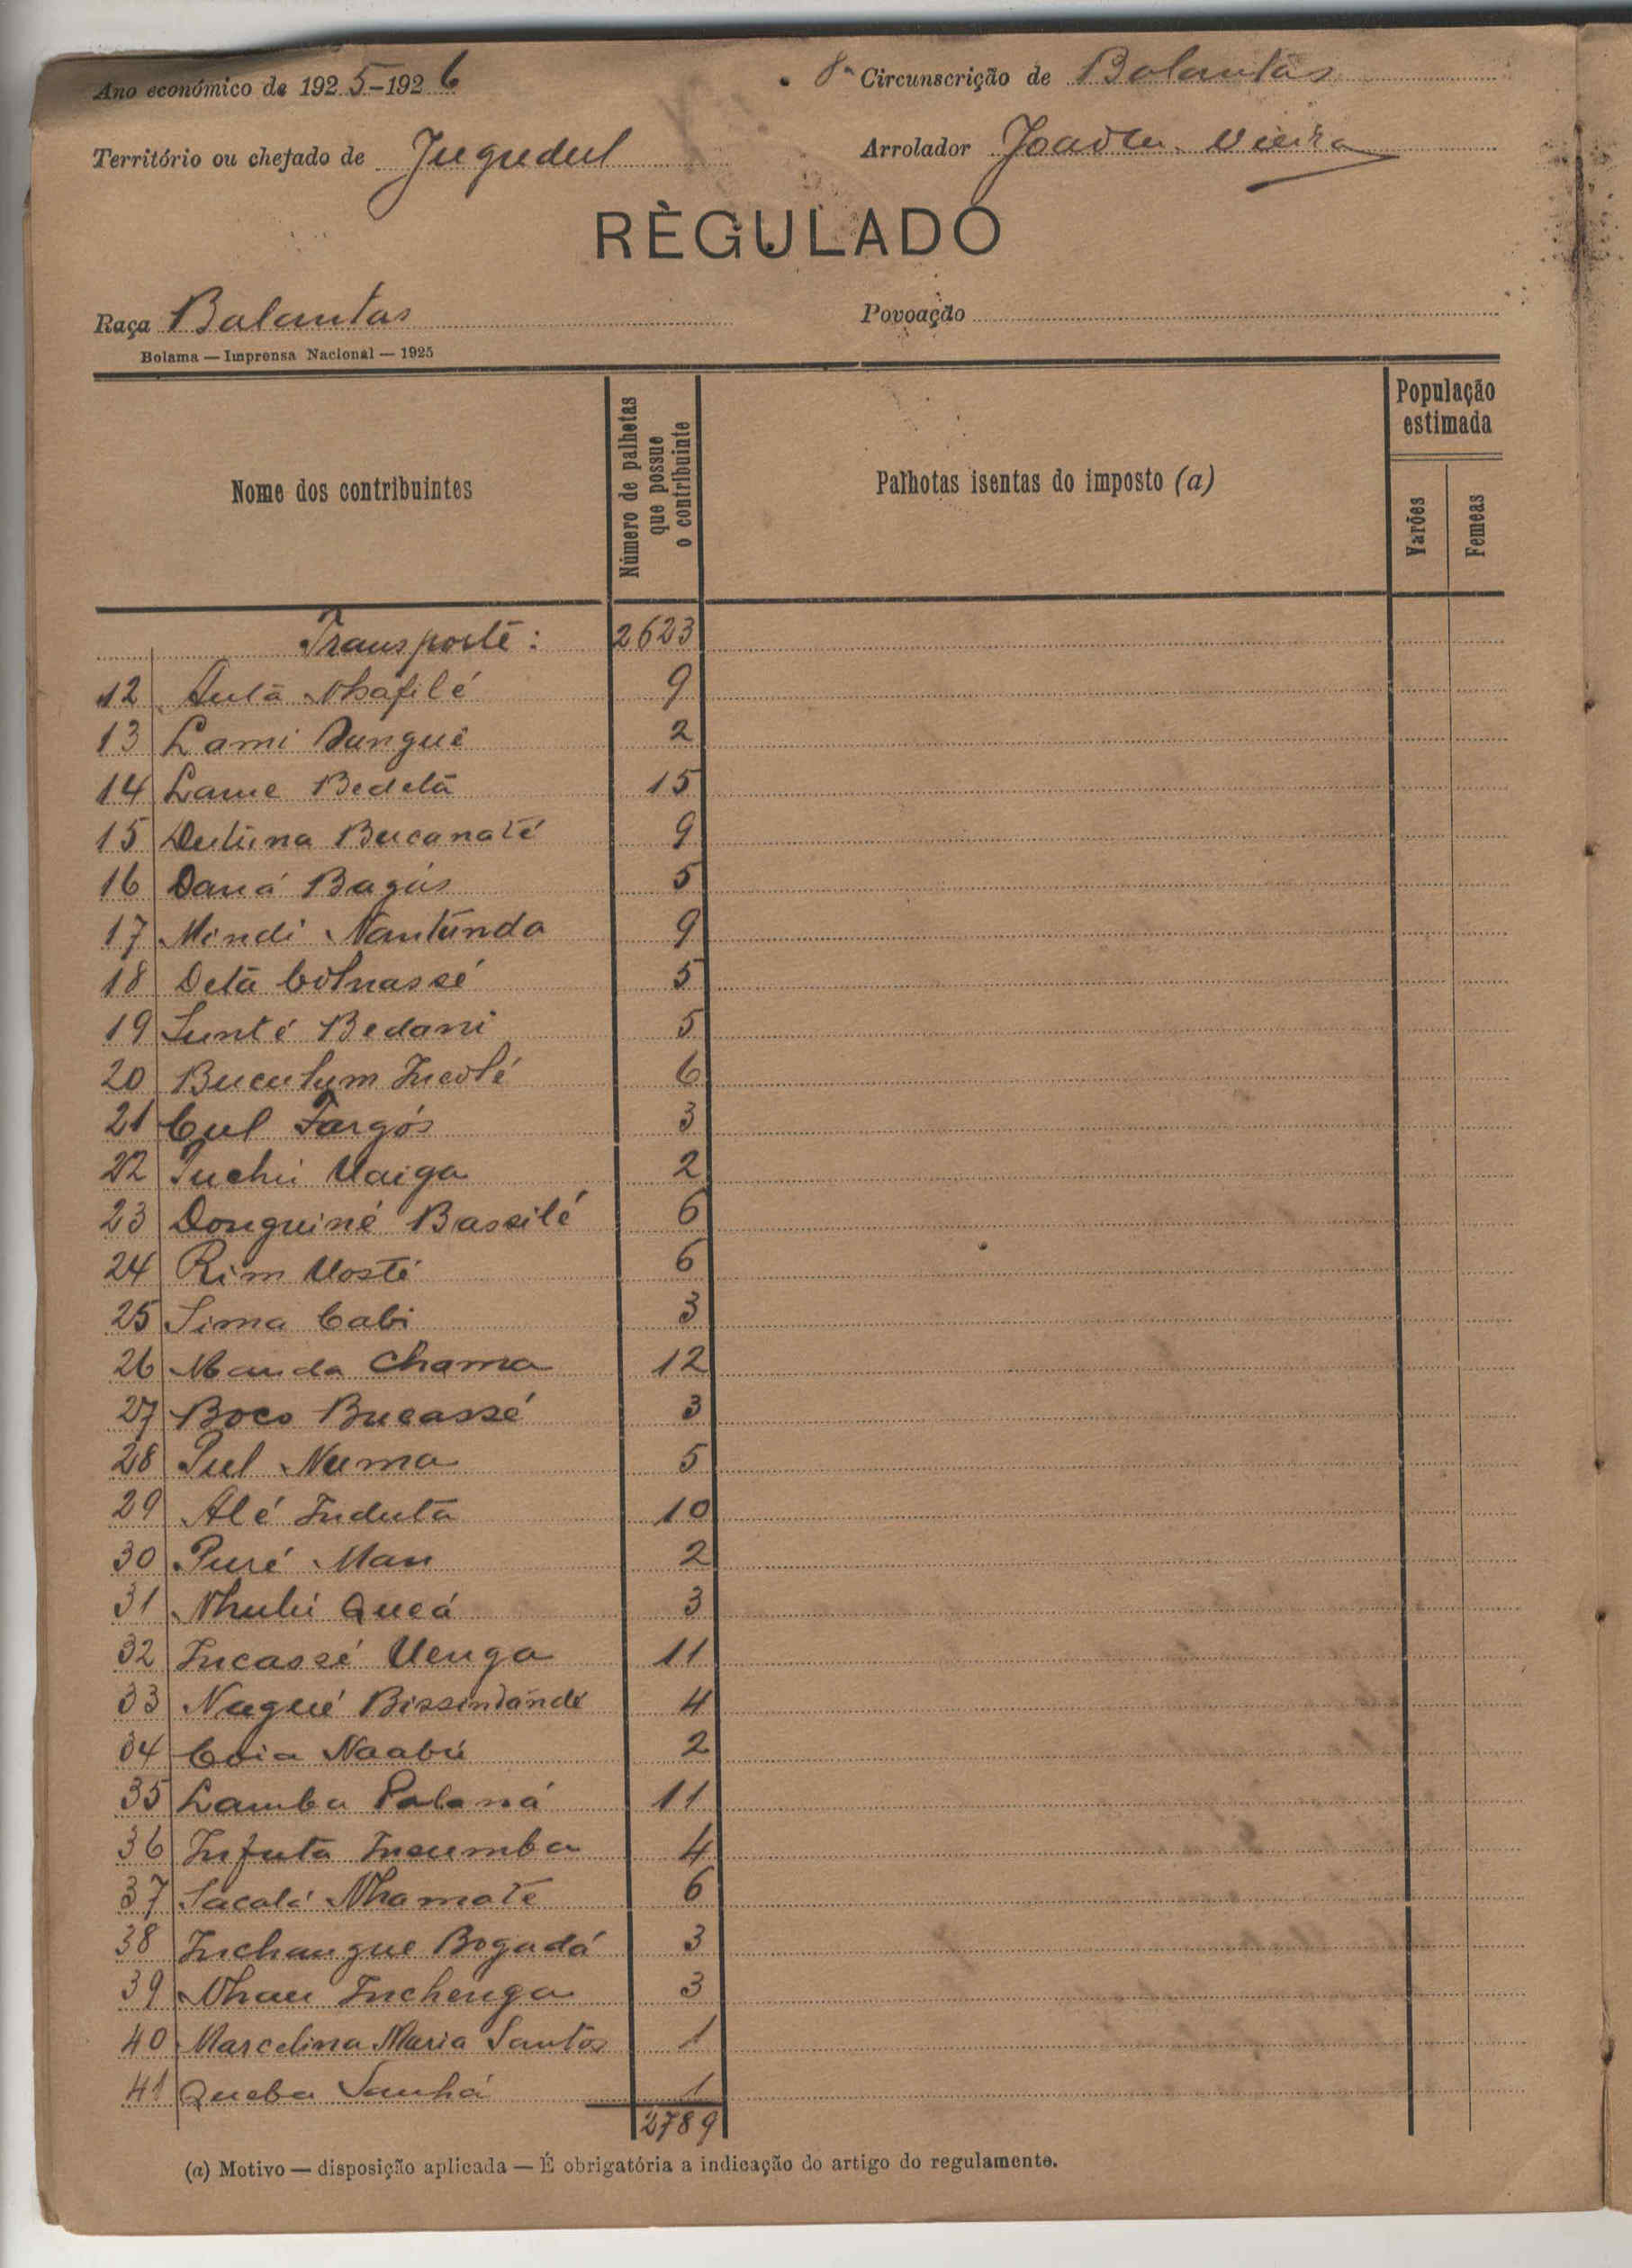 Ano económico de 1925-1926
8ª Circunscrição de Balantas
Território ou chefado de Jugudul
Arrolador Vieira
RÈGULADO
Raça Balantas
Povoação
Bolama — Imprensa Nacional — 1925
Nome dos contribuintes
Número de palhetas que possue o contribuinte
Palhotas isentas do imposto (a)
População estimada
Varões
Femeas
Transporte: 2623
12 Autã Nhafilé 9
13 Lami Dangué 2
14 Lame Bedetã 15
15 Dutuna Bucanaté 9
16 Daná Bagús 5
17 Mindi Nantúnda 9
18 Detã Colnassé 5
19 Sunté Bedani 5
20 Buculum Incolé 6
21 Cul Fargós 3
22 Tuchú Uaiga 2
23 Donguiné Bassilé 6
24 Rim Uosté 6
25 Sima Cabi 3
26 Manda Chama 12
27 Boco Bucassé 3
28 Pul Numa 5
29 Alé Indutã 10
30 Puré Man 2
31 Nhulú Quéá 3
32 Incassé Uenga 11
33 Nagué Bissindandé 4
34 Coia Naabú 2
35 Lamba Palaná 11
36 Infuta Incumba 4
37 Sacalá Nhamaté 6
38 Inchangue Bogadá 3
39 Nhau Inchenga 3
40 Marcelina Maria Santos 1
41 Queba Sanhá 1
2789
(a) Motivo — disposição aplicada — É obrigatória a indicação do artigo do regulamento.